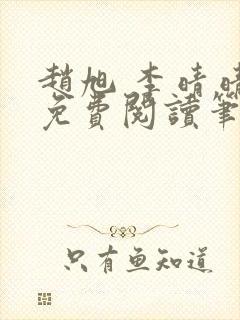 趙旭 李晴晴
免費閱讀筆
只有魚知道